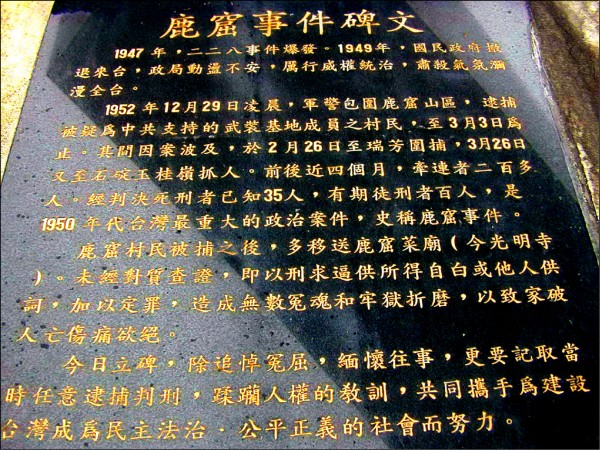 鹿窟事件碑文
1947年，二二八事件爆發。1949年，國民政府撤
退來台，政局動盪不安，厲行威權統治，肅殺氣氛瀰
漫全台。
1952年12月29日凌晨，軍警包圍鹿窟山區，逮捕
被疑為中共支持的武裝基地成員之村民，至3月3日為
止。其間因案波及，於2月26日至瑞芳圍捕，3月26日
又至石碇玉桂嶺抓人。前後近四個月，牽連者二百多
人。經判決死刑者已知35人，有期徒刑者百人，是
1950年代台灣最重大的政治案件，史稱鹿窟事件。
鹿窟村民被捕之後，多移送鹿窟菜廟（今光明寺
）。未經對質查證，即以刑求逼供所得自白或他人供
詞，加以定罪，造成無數冤魂和牢獄折磨，以致家破
人亡傷痛欲絕。
今日立碑，除追悼冤屈，緬懷往事，更要記取當
時任意逮捕判刑，蹂躪人權的教訓，共同攜手為建設
台灣成為民主法治．公平正義的社會而努力。